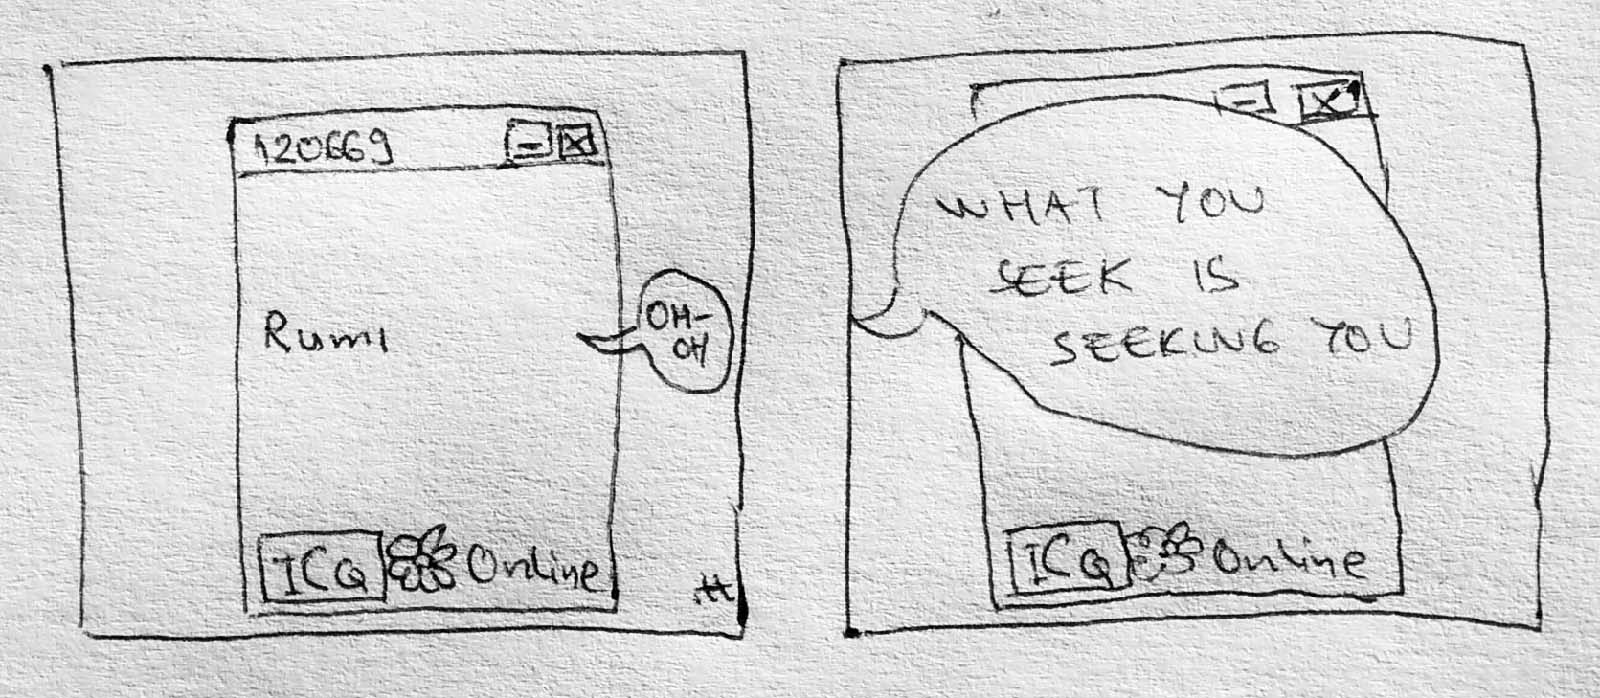 120669
Rumi
OH-
OH
ICQ Online
WHAT YOU
SEEK IS
SEEKING YOU
ICQ Online